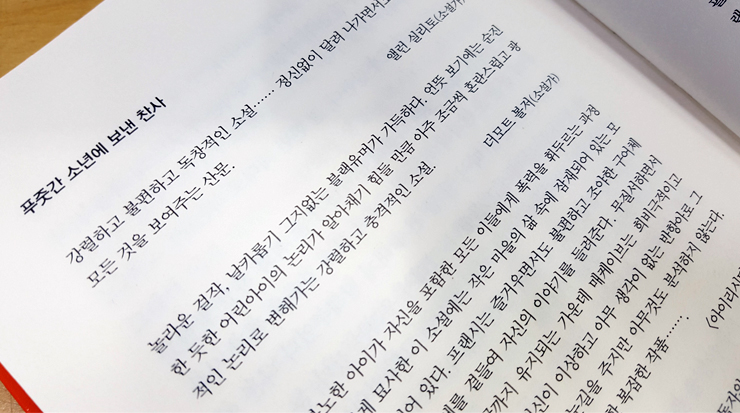 푸줏간 소년에 보낸 찬사
강렬하고 불편하고 독창적인 소설…… 정신없이 달려 나가면서도
모든 것을 보여주는 산문.
앨런 실리토(소설가)
놀라운 걸작, 날카롭기 그지없는 블랙유머가 가득하다. 언뜻 보기에는 순진
한 듯한 어린아이의 논리가 알아채기 힘들 만큼 아주 조금씩 혼란스럽고 광
적인 논리로 변해가는 강렬하고 충격적인 소설.
더모트 볼저(소설가)
노한 아이가 자신을 포함한 모든 이들에게 폭력을 휘두르는 과정
묘사한 이 소설에는 작은 마을의 삶 속에 잠재되어 있는 모
있다. 프랜시는 즐거우면서도 불편하고 소야한 구어체
를 곁들여 자신의 이야기를 들려준다. 무질서하면서
까지 유지되는 가운데 매케이브는 희비극적이고
이상하고 아무 생각이 없는 반항아로 그
주지만 아무것도 분석하지 않는다.
복잡한 작품……